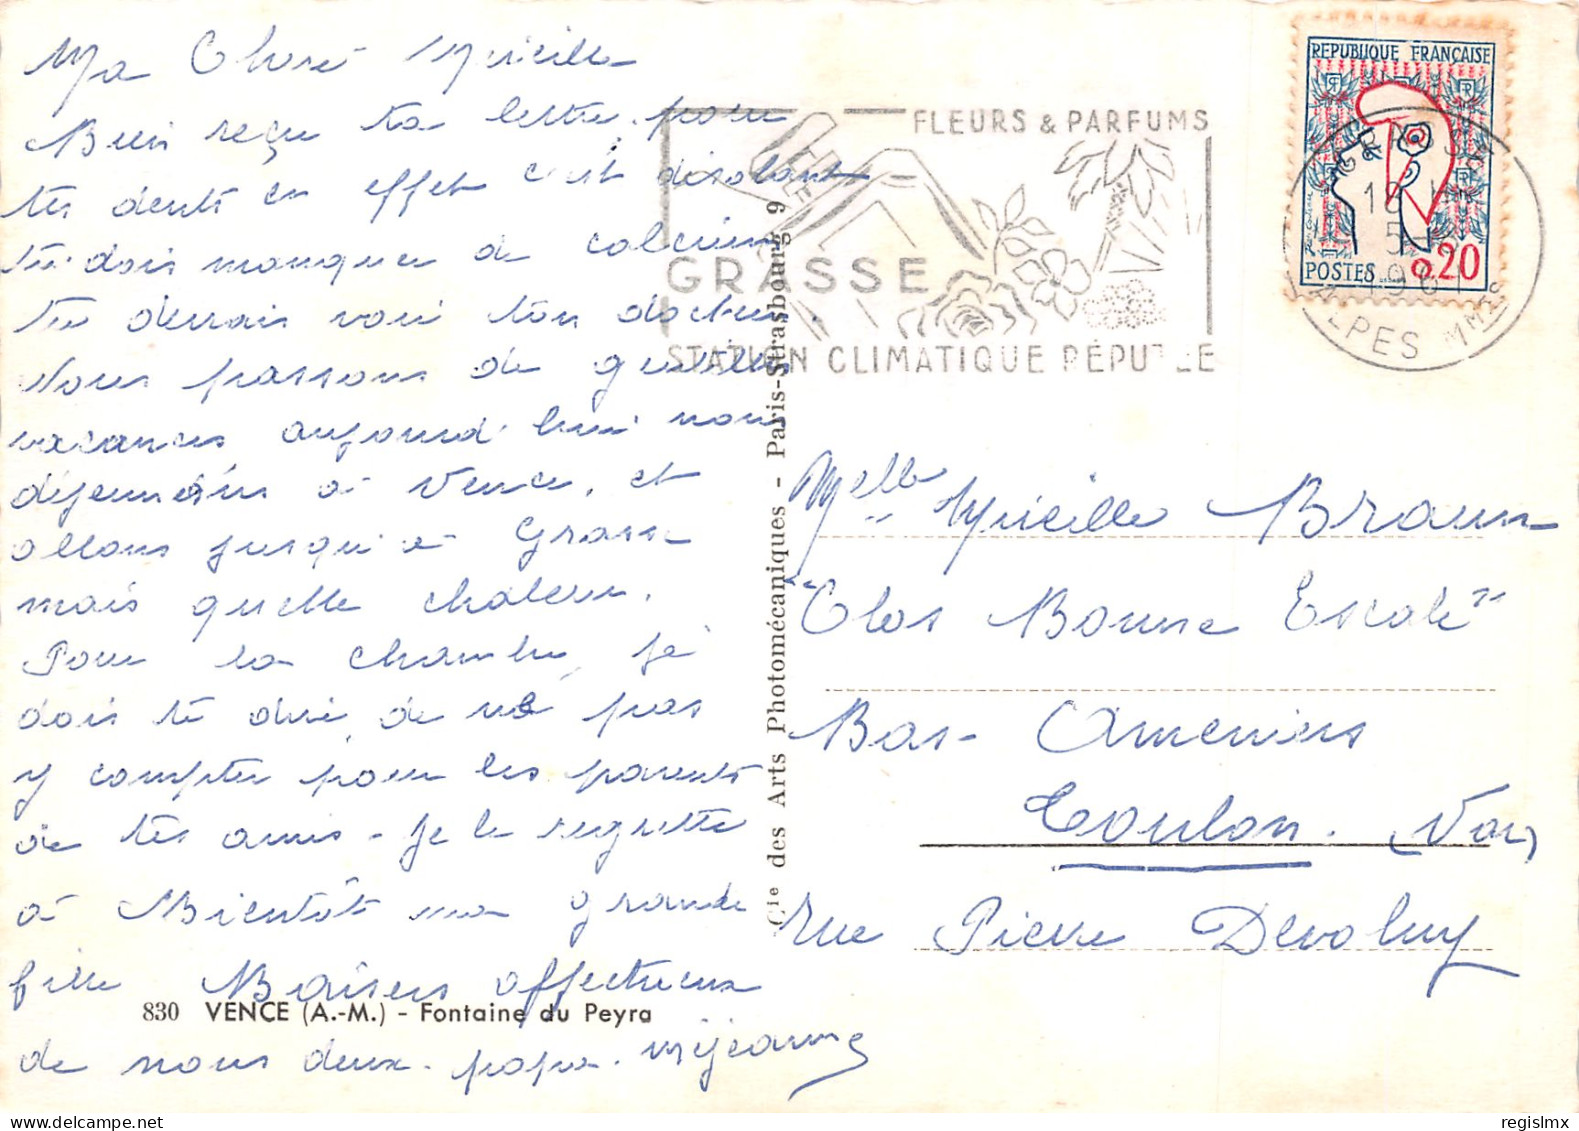 Ma Chère Mireille
Bien reçu ta lettre, pour
tes dents en effet c'est désolant
tu dois manquer de calcium
tu devrais voir ton docteur.
Nous passons de
vacances aujourd'hui nous
déjeunons à Vence, et
allons jusqu'à Grasse
mais quelle chaleur.
Pour la chambre, je
dois te dire, de ne pas
y compter pour les parents
de tes amis - Je le regrette
à Bientôt ma grande
fille Baisers affectueux
de nous deux. papa.
830 VENCE (A.-M.) - Fontaine du Peyra
Cie des Arts Photomécaniques - Paris-Strasbourg 9
FLEURS & PARFUMS
GRASSE
STATION CLIMATIQUE RÉPUTÉE
REPUBLIQUE FRANÇAISE
POSTES 0,20
GRASSE
18 H
5
1961
ALPES MMES
Melle Mireille Braun
"Clos Bonne Escale"
Bas- Ameniers
Toulon. (Var)
rue Pierre Devoluy
regislmx